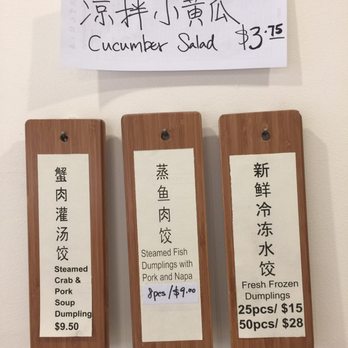 凉拌小黄瓜
Cucumber Salad $3.75
蟹肉灌汤饺
Steamed
Crab &
Pork
Soup
Dumpling
$9.50
蒸鱼肉饺
Steamed Fish
Dumplings with
Pork and Napa
8pcs/$9.00
新鲜冷冻水饺
Fresh Frozen
Dumplings
25pcs/ $15
50pcs/ $28